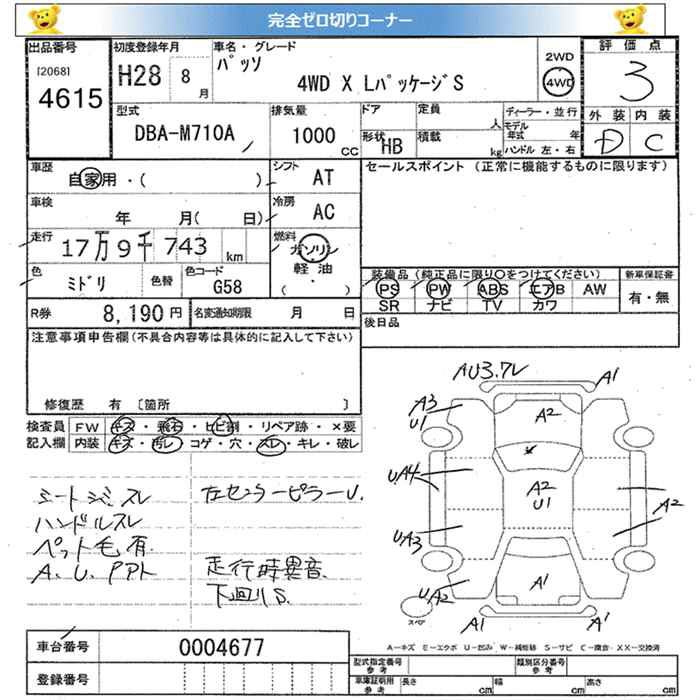 完全ゼロ切りコーナー
出品番号
[2068]
4615
初度登録年月
H28 8月
車名・グレード
パッソ
4WD X LパッケージS
2WD
4WD
評価点
3
外装 内装
D C
型式
DBA-M710A
排気量
1000 CC
ドア
形状 HB
定員 人
積載 kg
ディーラー・並行
モデル年式 年
ハンドル 左・右
車歴
自家用・( )
シフト
AT
セールスポイント (正常に機能するものに限ります)
車検
年 月( 日)
冷房
AC
走行
17万9千743 km
燃料
ガソリン
軽油
( ・ )
色
ミドリ
色替
色コード
G58
装備品 (純正品に限り○をつけてください)
PS PW ABS エアB AW
SR ナビ TV カワ
新車保証書
有・無
R券
8,190 円
名変通知期限
月 日
後日品
注意事項申告欄(不具合内容等は具体的に記入して下さい)
修復歴 有 〔箇所 〕
検査員記入欄
FW キズ・飛石・ヒビ割・リペア跡・×要
内装 キズ・汚レ・コゲ・穴・スレ・キレ・破レ
シートシミ、スレ
ハンドルスレ
ペット毛有
A、U、PPト
左センターピラーU.
走行時異音.
下回りS.
AU3.ワレ
A1
A3
U1
A2
UA4
A2
U1
A2
UA3
UA2
A1
A1
A1
スペア
A−キズ E−エクボ U−凹み W−補修跡 S−サビ C−腐食 XX−交換済
車台番号
0004677
登録番号
型式指定番号 参考
類別区分番号 参考
車庫証明用 参考
長さ cm
幅 cm
高さ cm